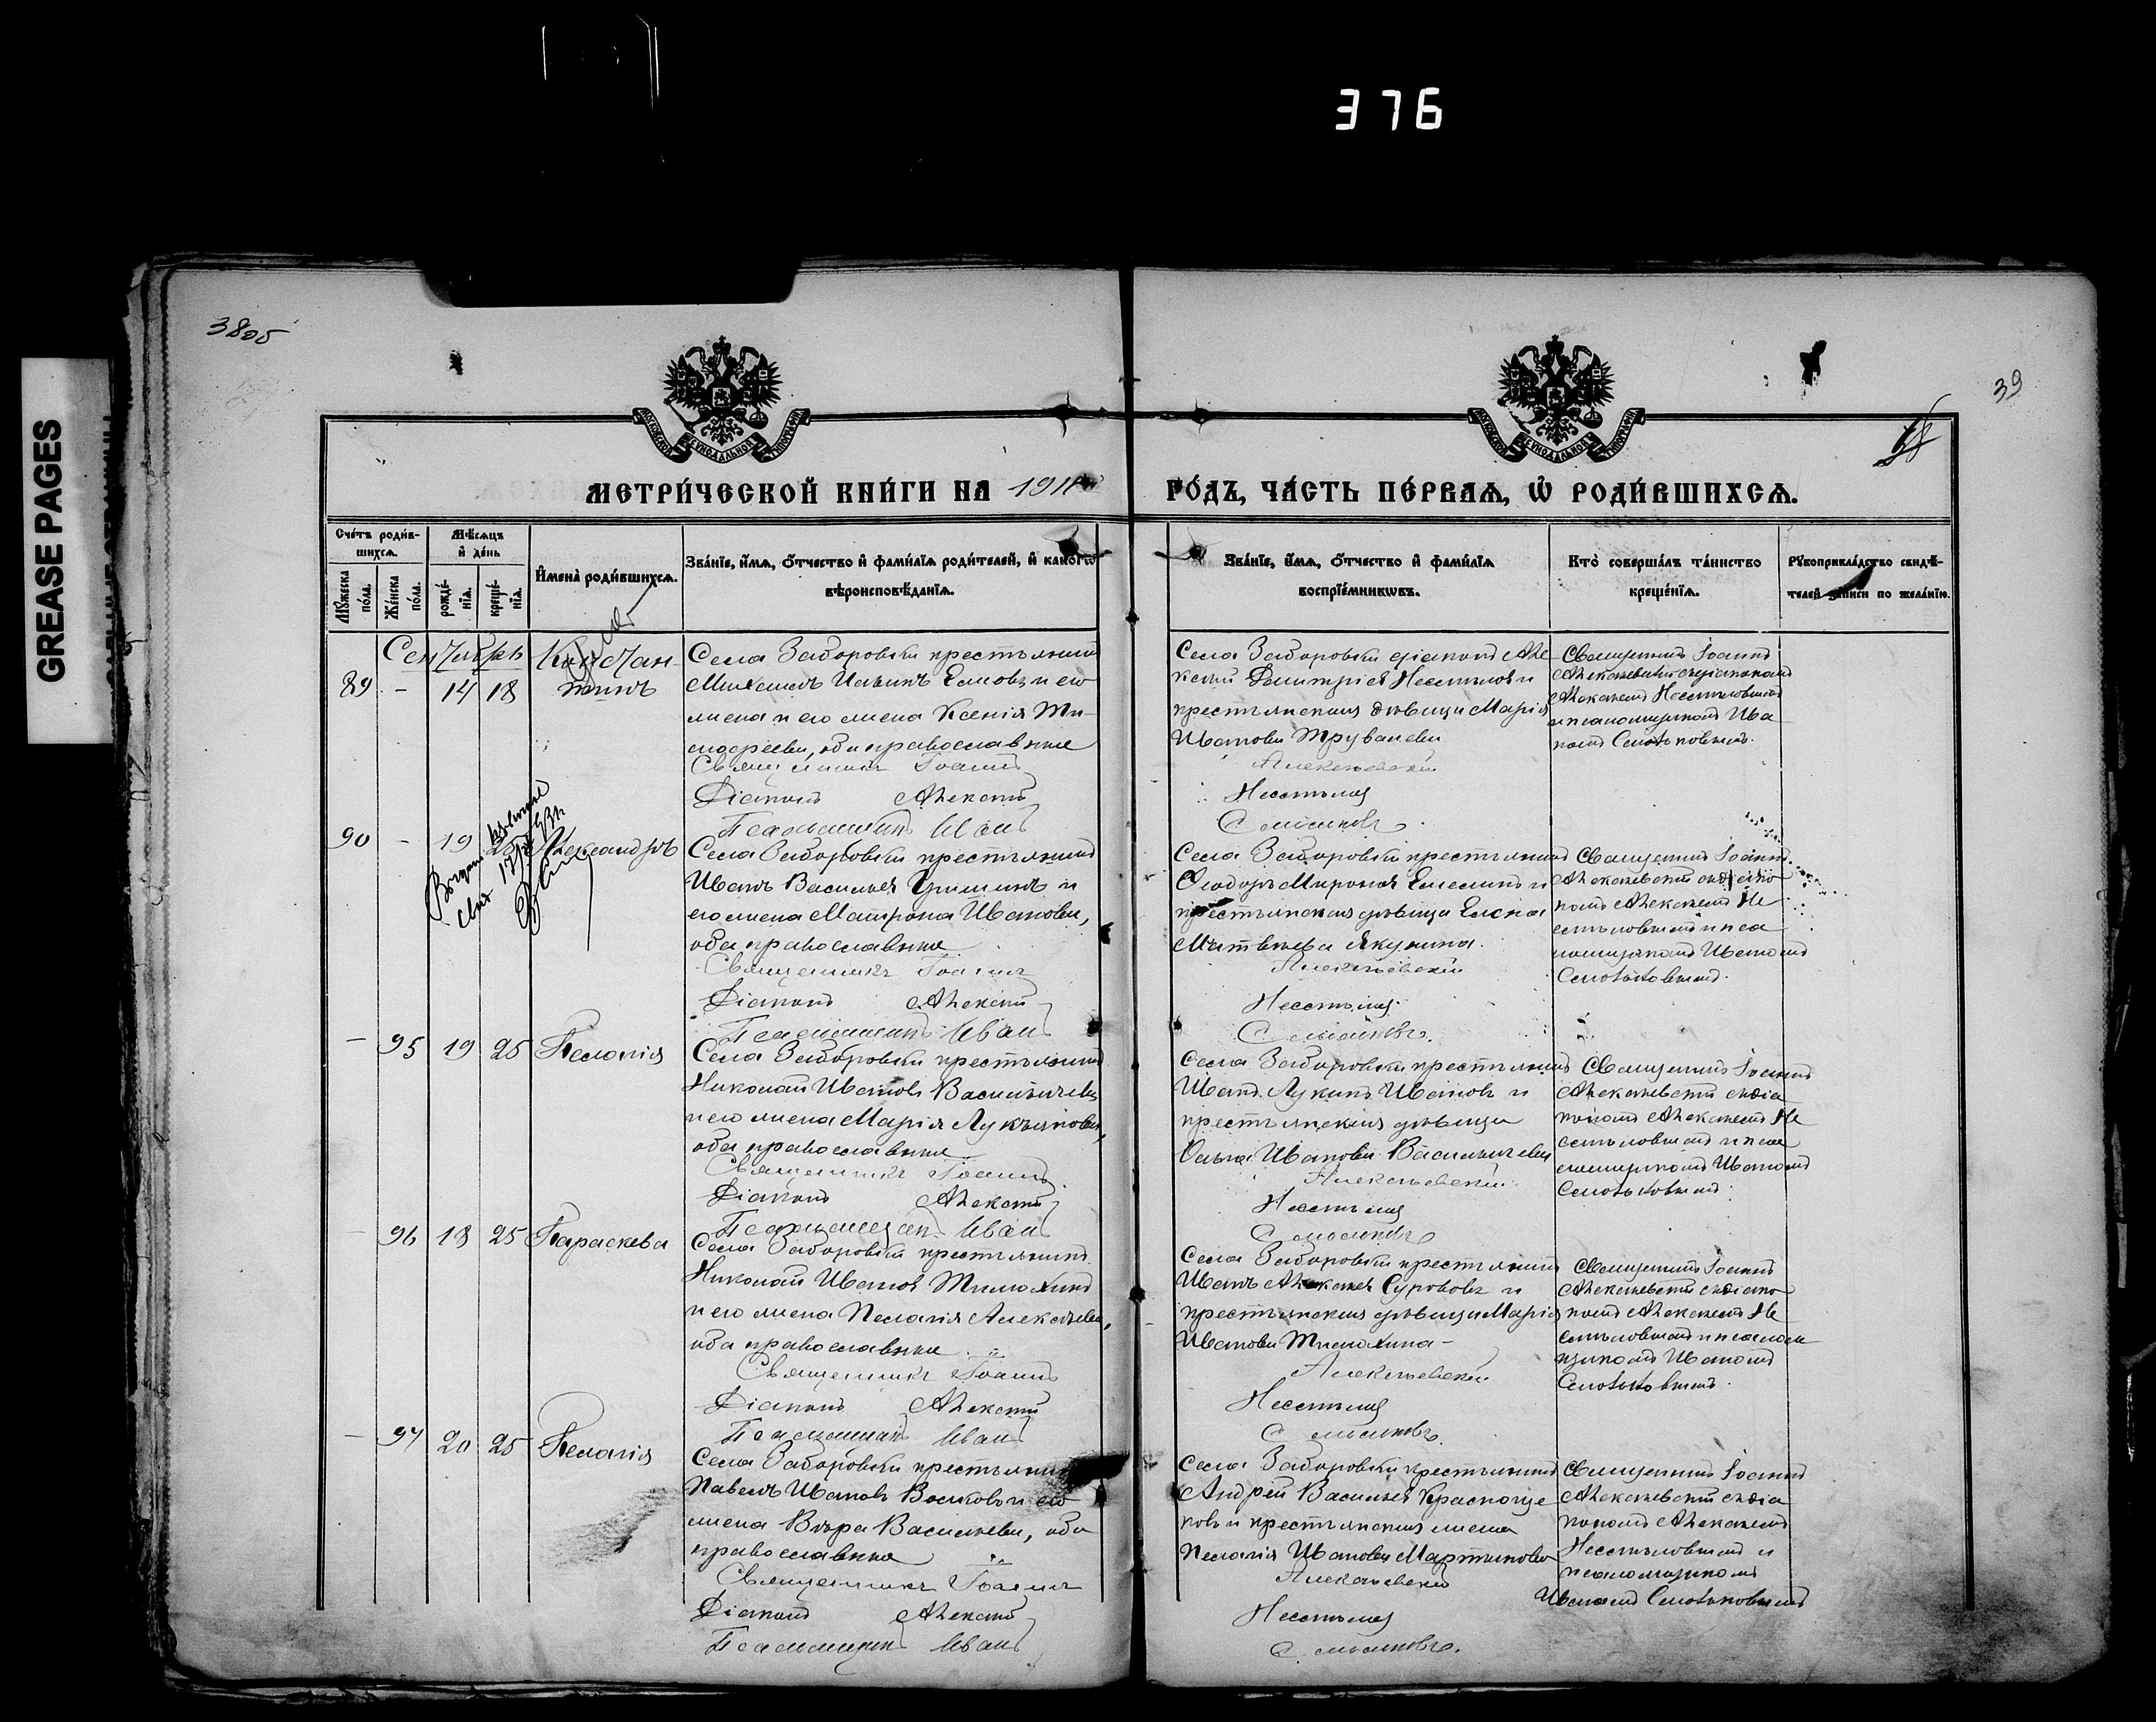 376
GREASE PAGES
3805
39
МЕТРИ́ЧЕСКОЙ КНИ́ГИ НА 1911
ГО́ДЪ, ЧА́СТЬ ПЕ́РВАѦ, Ѿ РОДИ́ВШИХСѦ.
Сче́тъ роди́в-
шихсѧ.
Мѣ́сѧцъ
и҆ де́нь
И҆мена̀ роди́вшихсѧ.
Зва́нїе, и҆́мѧ, ѻ҆́тчество и҆ фами́лїѧ роди́телей, и҆ како́гѡ
вѣроисповѣ́данїѧ.
Мꙋ́жеска по́ла.
Же́нска по́ла.
рожде́-
нїѧ.
креще́-
нїѧ.
Зва́нїе, и҆́мѧ, ѻ҆́тчество и҆ фами́лїѧ
воспрїе́мникѡвъ.
Кто̀ соверша́лъ та́инство
креще́нїѧ.
Рꙋкоприкла́дство свидѣ́-
телей за́писи по жела́нїю.
Сентябрь
89 - 14 18 Констан-
тинъ
Села Заборовки крестьянинъ
Михаилъ Ильинъ и его
жена и его жена Ксенія Ти-
моѳеева, оба православные
Священникъ Іоаннъ
Діаконъ Алексѣй
Псаломщикъ Иванъ
Села Заборовки діаконъ Але-
ксѣй Димитріевъ Несмѣловъ и
крестьянская дѣвица Марія
Иванова
Алексѣевскій
Несмѣловъ
Смысловъ
Священникъ Іоаннъ
Алексѣевскій съ діакономъ
Алексѣемъ Несмѣловымъ
и псаломщикомъ Ива
номъ
90 - 19 25 Александръ
Села Заборовки крестьянинъ
Иванъ Васильевъ Гришинъ и
его жена Матрона Иванова,
оба православные
Священникъ Іоаннъ
Діаконъ Алексѣй
Псаломщикъ Иванъ
Села Заборовки крестьянинъ
Ѳеодоръ Мироновъ и
крестьянская дѣвица Елена
Матвѣева Якунина.
Алексѣевскій
Несмѣловъ
Священникъ Іоаннъ
Алексѣевскій съ діако
номъ Алексѣемъ Не
смѣловымъ и пса
ломщикомъ Иваномъ
— 95 19 25 Пелагія
Села Заборовки крестьянинъ
Николай Ивановъ Васильичевъ
и его жена Марія Лукьянова,
оба православные
Священникъ Іоаннъ
Діаконъ Алексѣй
Псаломщикъ Иванъ
Села Заборовки крестьянинъ
Иванъ Лукинъ Ивановъ и
крестьянская дѣвица
Ольга Иванова Васильичева
Алексѣевскій
Несмѣловъ
Священникъ Іоаннъ
Алексѣевскій съ діа
кономъ Алексѣемъ Не
смѣловымъ и пса
ломщикомъ Иваномъ
— 96 18 25 Параскева
Села Заборовки крестьянинъ
Николай Ивановъ Тимохинъ
и его жена Пелагія Алексѣева,
оба православные
Священникъ Іоаннъ
Діаконъ Алексѣй
Псаломщикъ Иванъ
Села Заборовки крестьянинъ
Иванъ Алексѣевъ Сурововъ и
крестьянская дѣвица Марія
Иванова Тимохина
Алексѣевскій
Несмѣловъ
Священникъ Іоаннъ
Алексѣевскій съ діако
номъ Алексѣемъ Не
смѣловымъ и псалом
щикомъ Иваномъ
— 97 20 25 Пелагія
Села Заборовки крестьянинъ
Павелъ Ивановъ Волковъ и его
жена Вѣра Васильева, оба
православные
Священникъ Іоаннъ
Діаконъ Алексѣй
Псаломщикъ Иванъ
Села Заборовки крестьянинъ
Андрей Васильевъ Краснощё
ковъ и крестьянская жена
Пелагія Иванова Мартынова
Алексѣевскій
Несмѣловъ
Священникъ Іоаннъ
Алексѣевскій съ діа
кономъ Алексѣемъ
Несмѣловымъ и
псаломщикомъ
Иваномъ